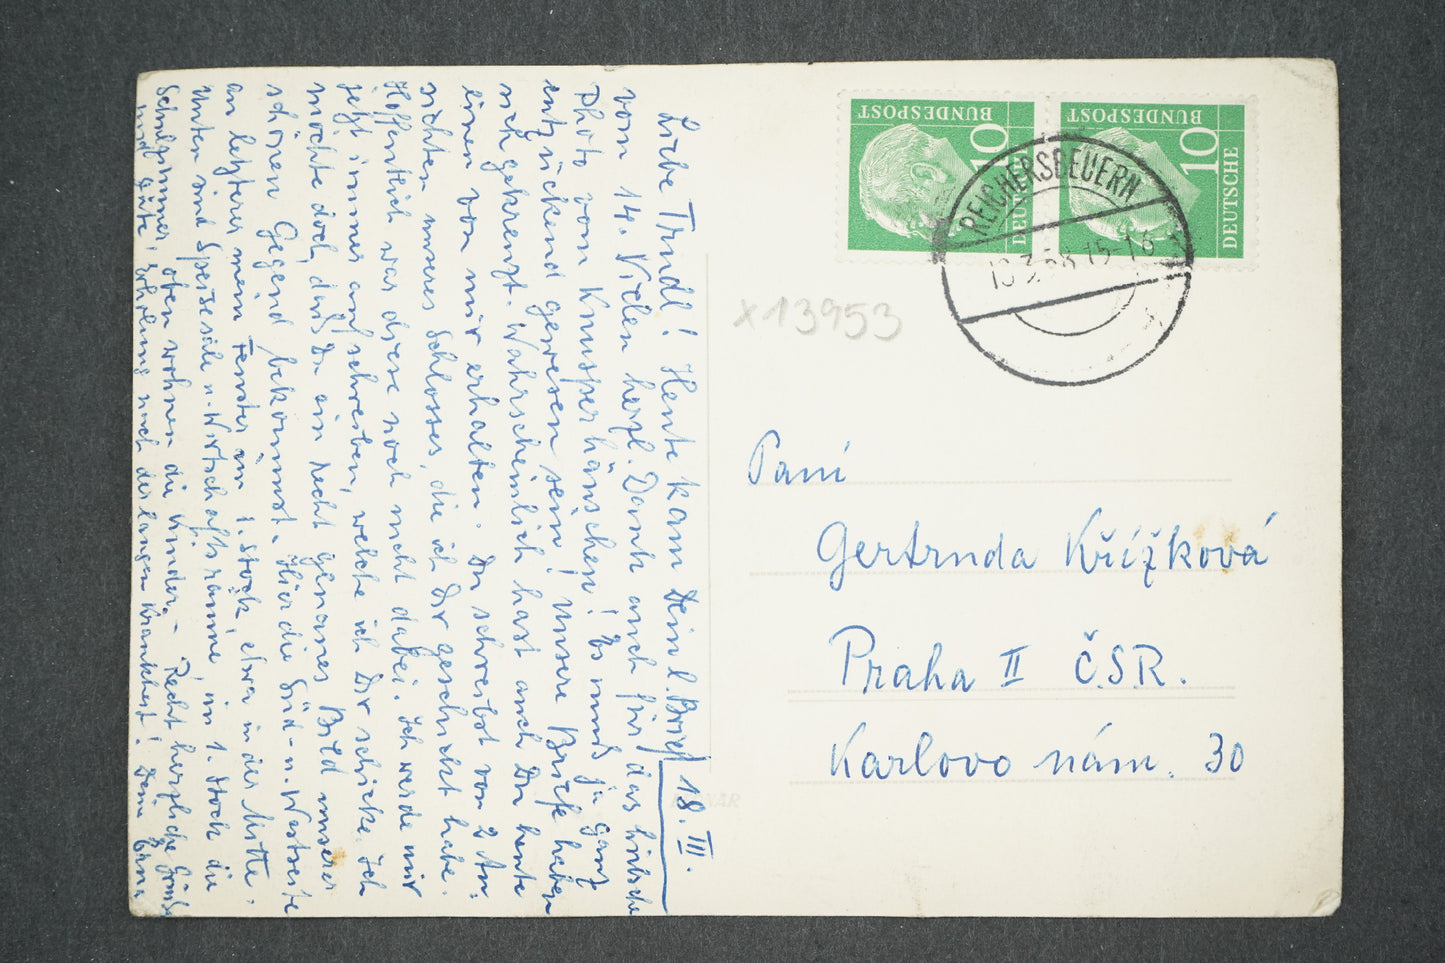 18. III.
Liebe Trudl! Heute kam Dein l. Brief
vom 14. Vielen herzl. Dank auch für das hübsche
Photo vom Knusperhäuschen! Es muß ja ganz
entzückend gewesen sein! Unsere Briefe haben
sich gekreuzt. Wahrscheinlich hast auch Du heute
einen von mir erhalten. Du schreibst von 2 An-
sichten unseres Schlosses, die ich Dir geschickt habe.
Hoffentlich war diese noch nicht dabei. Ich werde mir
jetzt immer aufschreiben, welche ich Dir schicke. Ich
möchte doch, daß Du ein recht genaues Bild unserer
schönen Gegend bekommst. Hier die Süd- u. Westseite
an letzterer mein Fenster im 1. Stock, etwa in der Mitte.
Unten sind Speisesäle u. Wirtschaftsräume, im 1. Stock die
Schulzimmer, oben wohnen die Kinder. – Recht herzliche Grüße
und gute Erholung nach der langen Krankheit! Deine Erna
DEUTSCHE
BUNDESPOST
10
DEUTSCHE
BUNDESPOST
10
REICHERSBEUERN
x13953
Paní
Gertruda Křížková
Praha II ČSR.
Karlovo nám. 30